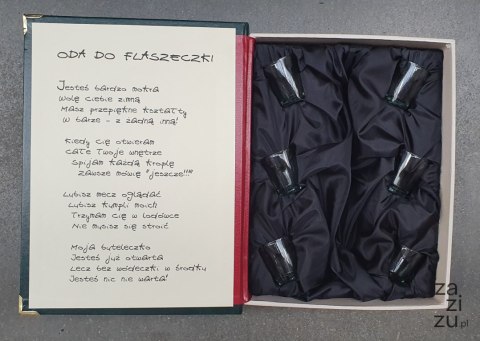 ODA DO FLASZECZKI
Jesteś bardzo mokra
Wolę ciebie zimną
Masz przepiękne kształty
W barze - z żadną inną!
Kiedy cię otwieram
Całe Twoje wnętrze
Spijam każdą kroplę
Zawsze mówię "jeszcze..."
Lubisz mecz oglądać
Lubisz kumpli moich
Trzymam cię w lodówce
Nie musisz się stroić
Moja buteleczko
Jesteś już otwarta
Lecz bez wódeczki w środku
Jesteś nic nie warta!
za
zi
zu.pl